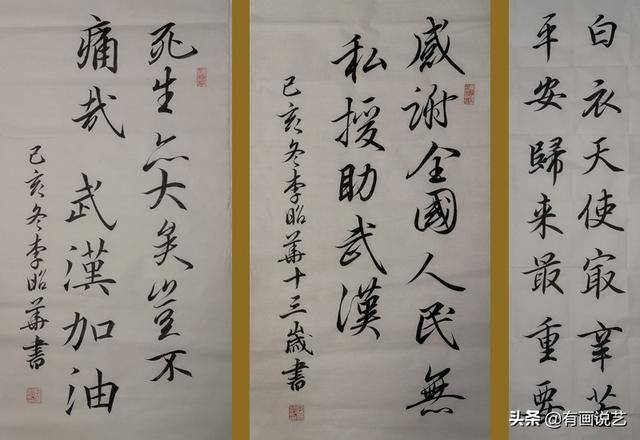 死生亦大矣豈不
痛哉 武漢加油
己亥冬李昭華書
感謝全國人民無
私授助武漢
己亥冬李昭華十三歲書
白衣天使㝡辛苦
平安歸来最重要
头条 @有画说艺